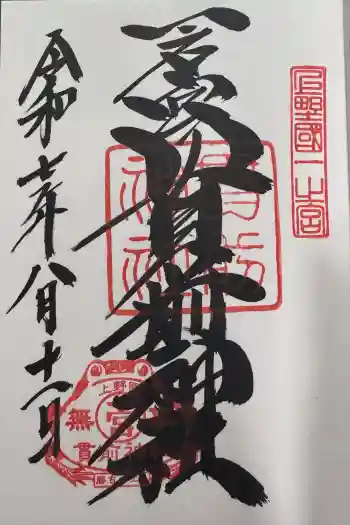 上野國一之宮
一之宮貫前神社
令和七年八月十一日
上野國
宮
無
貫前神